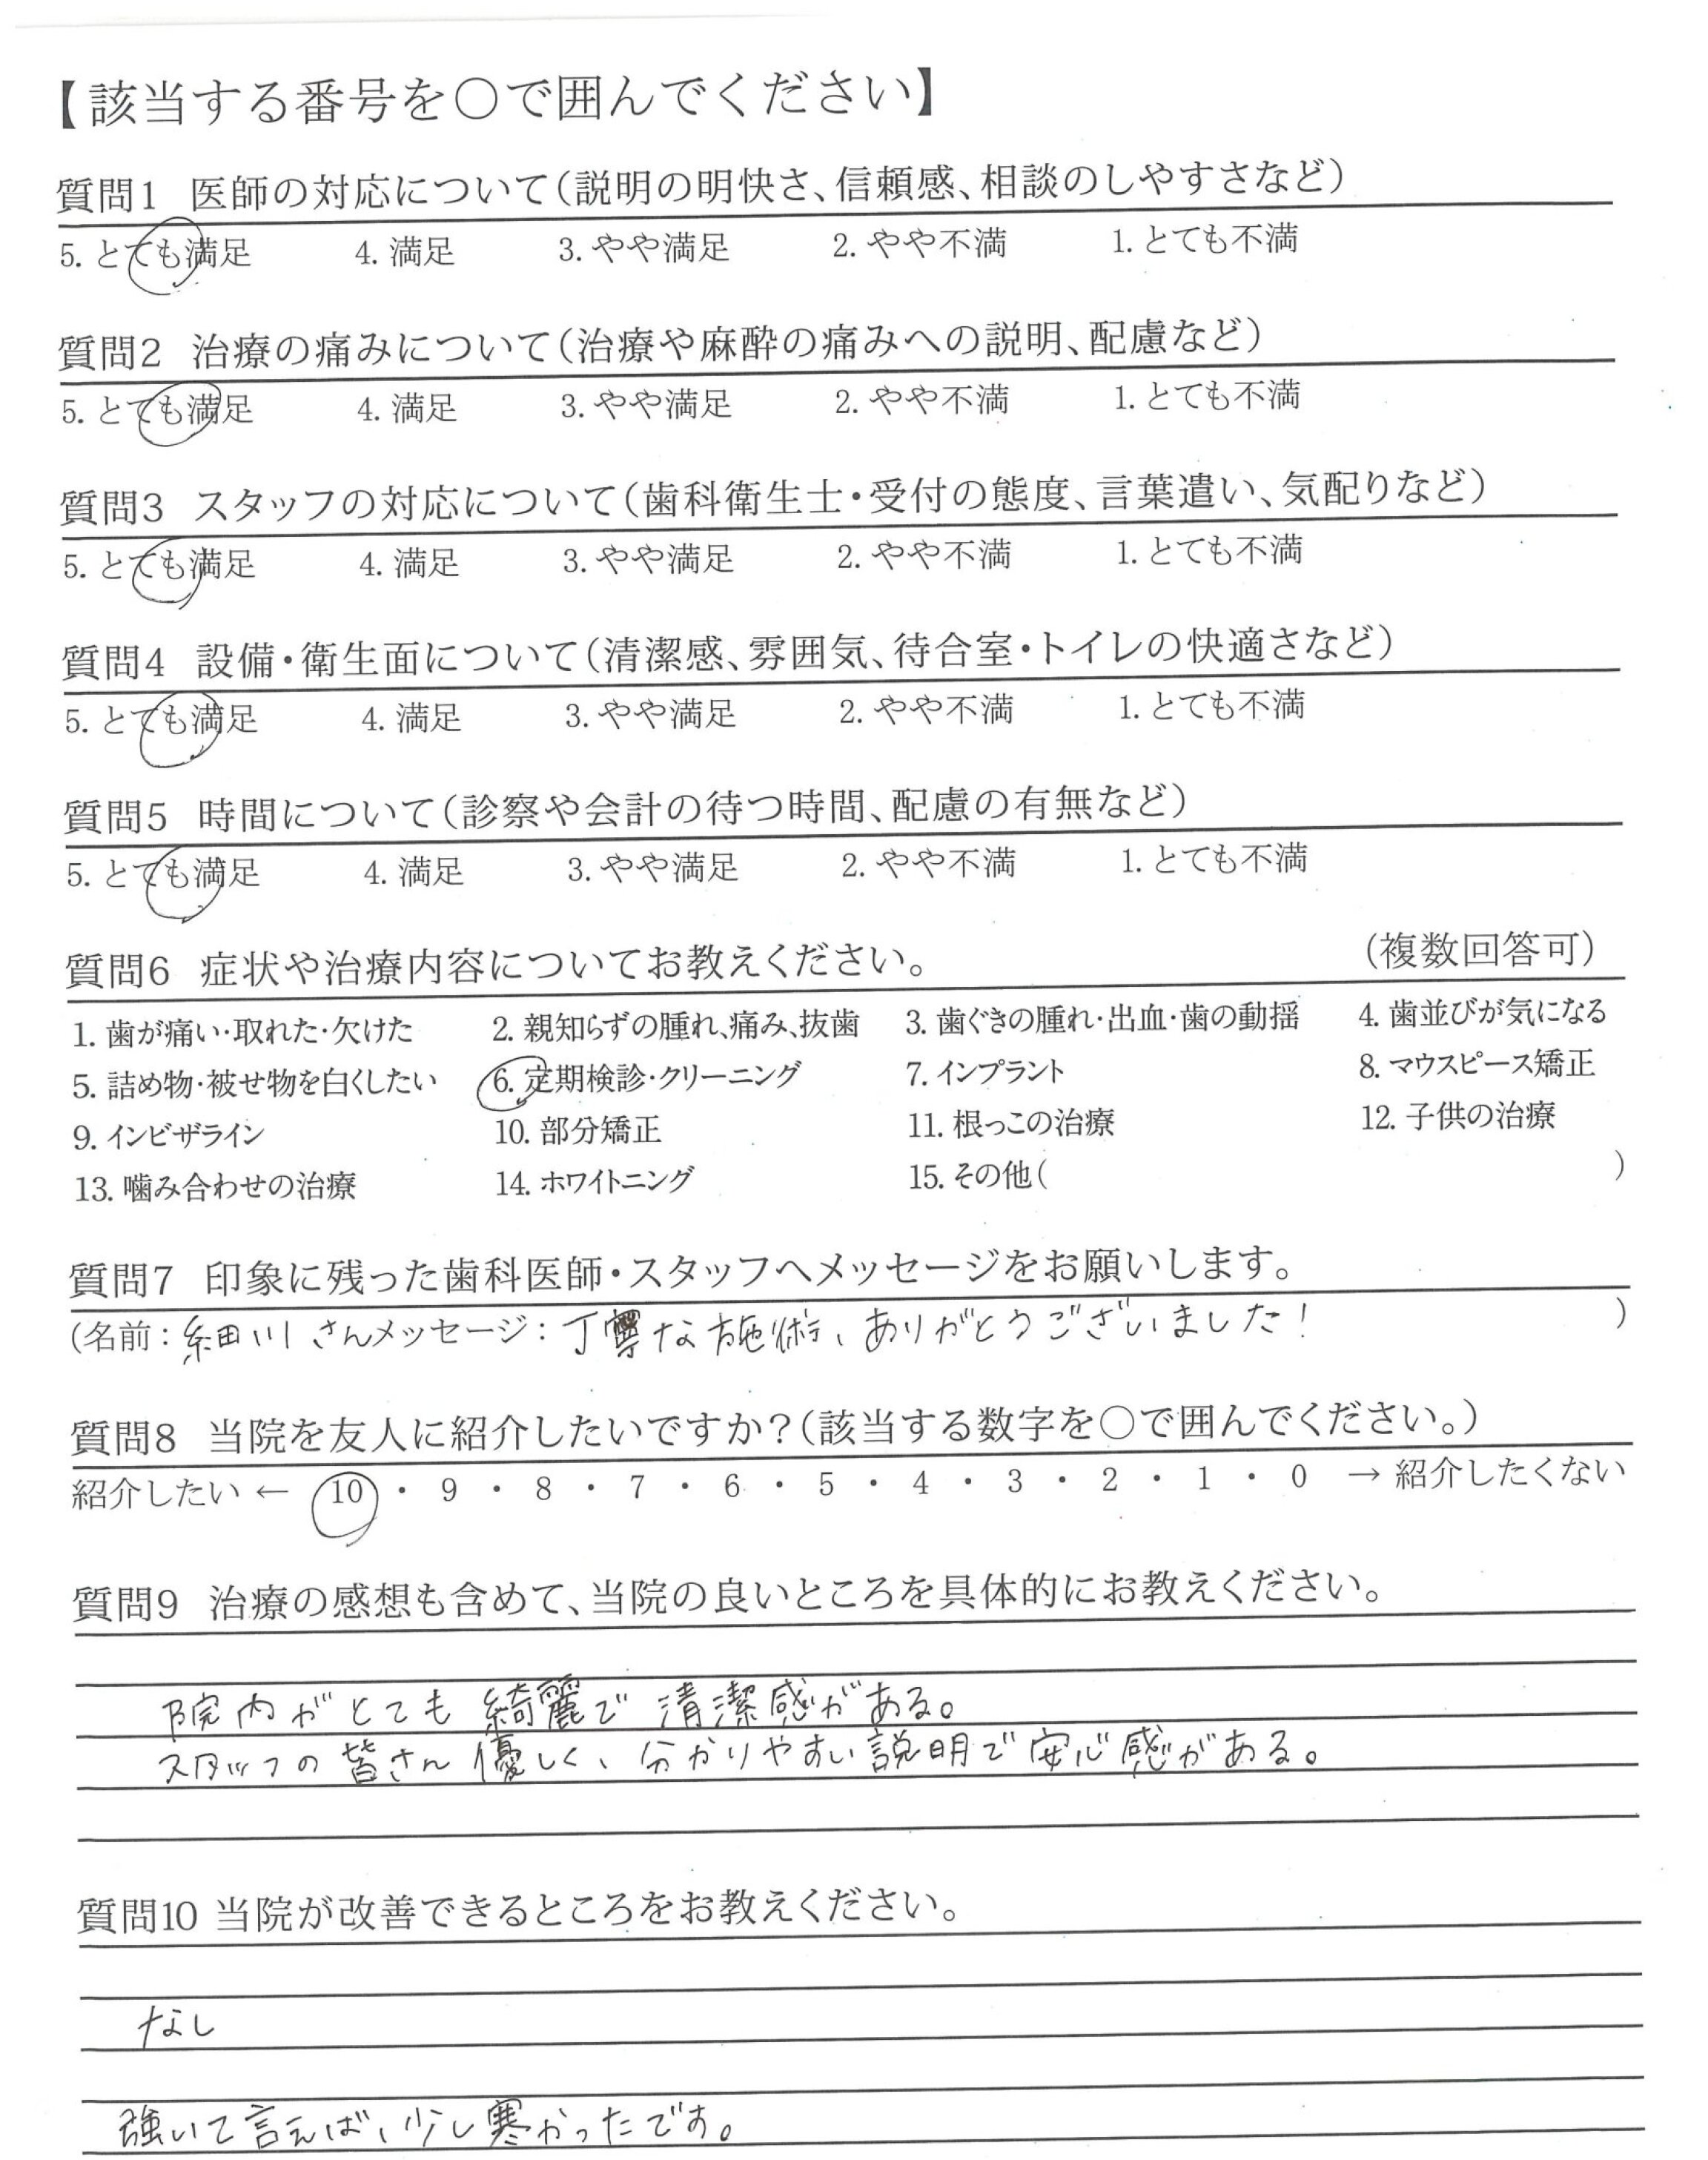 【該当する番号を○で囲んでください】
質問1 医師の対応について(説明の明快さ、信頼感、相談のしやすさなど)
5. とても満足 4. 満足 3. やや満足 2. やや不満 1. とても不満
質問2 治療の痛みについて(治療や麻酔の痛みへの説明、配慮など)
5. とても満足 4. 満足 3. やや満足 2. やや不満 1. とても不満
質問3 スタッフの対応について(歯科衛生士・受付の態度、言葉遣い、気配りなど)
5. とても満足 4. 満足 3. やや満足 2. やや不満 1. とても不満
質問4 設備・衛生面について(清潔感、雰囲気、待合室・トイレの快適さなど)
5. とても満足 4. 満足 3. やや満足 2. やや不満 1. とても不満
質問5 時間について(診察や会計の待つ時間、配慮の有無など)
5. とても満足 4. 満足 3. やや満足 2. やや不満 1. とても不満
質問6 症状や治療内容についてお教えください。 (複数回答可)
1. 歯が痛い・取れた・欠けた 2. 親知らずの腫れ、痛み、抜歯 3. 歯ぐきの腫れ・出血・歯の動揺 4. 歯並びが気になる
5. 詰め物・被せ物を白くしたい 6. 定期検診・クリーニング 7. インプラント 8. マウスピース矯正
9. インビザライン 10. 部分矯正 11. 根っこの治療 12. 子供の治療
13. 噛み合わせの治療 14. ホワイトニング 15. その他( )
質問7 印象に残った歯科医師・スタッフへメッセージをお願いします。
(名前：細川さんメッセージ：丁寧な施術、ありがとうございました! )
質問8 当院を友人に紹介したいですか？(該当する数字を○で囲んでください。)
紹介したい ← 10 ・ 9 ・ 8 ・ 7 ・ 6 ・ 5 ・ 4 ・ 3 ・ 2 ・ 1 ・ 0 → 紹介したくない
質問9 治療の感想も含めて、当院の良いところを具体的にお教えください。
院内がとても綺麗で清潔感がある。
スタッフの皆さん優しく、分かりやすい説明で安心感がある。
質問10 当院が改善できるところをお教えください。
なし
強いて言えば、少し寒かったです。